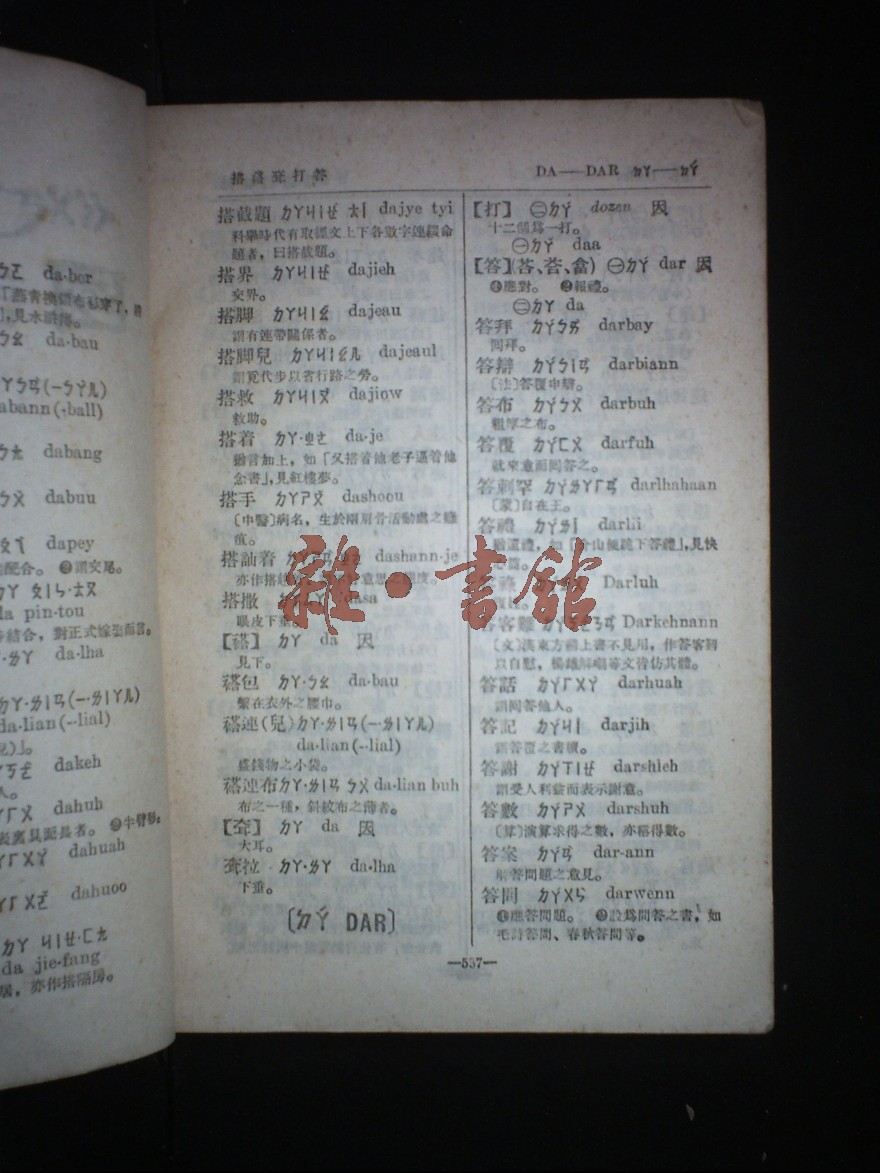 ㄉㄛ da·bor
「燕青
」,見水滸傳。
da·bau
abann (·ball)
dabang
dabuu
dapey
配合。 ❷謂交尾。
da pin-tou
結合,對正式嫁娶而言。
·ㄌㄚ da·lha
da·lian (·-lial)
dakeh
dahuh
❷牛臂
dahuah
dahuoo
ㄉㄚ ㄐㄧㄝ·ㄈㄤ
da jie·fang
居,亦作搭隔房。
搭 打答
DA——DAR ㄉㄚ——ㄉㄚˊ
搭截題 ㄉㄚㄐㄧㄝˊ ㄊㄧˊ dajye tyi
科舉時代有取經文上下各數字連綴命
題者,曰搭截題。
搭界 ㄉㄚㄐㄧㄝˋ dajieh
交界。
搭脚 ㄉㄚㄐㄧㄠˇ dajeau
謂有連帶關係者。
搭脚兒 ㄉㄚㄐㄧㄠˇㄦ dajeaul
謂覓代步以省行路之勞。
搭救 ㄉㄚㄐㄧㄡˋ dajiow
救助。
搭着 ㄉㄚ·ㄓㄜ da·je
猶言加上,如「又搭着他老子逼着他
念書」,見紅樓夢。
搭手 ㄉㄚㄕㄡˇ dashoou
〔中醫〕病名,生於兩肩骨活動處之
疽。
搭訕着 dashann·je
亦作搭
搭撒 dasa
眼皮下垂。
【褡】 ㄉㄚ da 因
見下。
褡包 ㄉㄚ·ㄅㄠ da·bau
繫在衣外之腰巾。
褡連(兒) ㄉㄚ·ㄌㄧㄢ(—·ㄌㄧㄚㄦ)
da·lian (·-lial)
盛錢物之小袋。
褡連布 ㄉㄚ·ㄌㄧㄢ ㄅㄨˋ da·lian buh
布之一種,斜紋布之薄者。
【耷】 ㄉㄚ da 因
大耳。
耷拉 ㄉㄚ·ㄌㄚ da·lha
下垂。
〔ㄉㄚˊ DAR〕
【打】 ㊁ㄉㄚˊ dozen 因
十二個爲一打。
㊀ㄉㄚˇ daa
【答】(荅、畣) ㊀ㄉㄚˊ dar 因
❶應對。 ❷報禮。
㊁ㄉㄚ da
答拜 ㄉㄚˊㄅㄞˋ darbay
回拜。
答辯 ㄉㄚˊㄅㄧㄢˋ darbiann
〔法〕答覆申辯。
答布 ㄉㄚˊㄅㄨˋ darbuh
粗厚之布。
答覆 ㄉㄚˊㄈㄨˋ darfuh
就來意而回答之。
答剌罕 ㄉㄚˊㄌㄚˋㄏㄢˇ darlhahaan
〔蒙〕自在王。
答禮 ㄉㄚˊㄌㄧˇ darlii
猶還禮,如「 山便跪下答禮」,見俠
Darluh
答客難 Darkehnann
〔文〕漢東方朔上書不見用,作答客難
以自慰,楊雄解嘲等文皆仿其體。
答話 ㄉㄚˊㄏㄨㄚˋ darhuah
謂回答他人。
答記 ㄉㄚˊㄐㄧˋ darjih
謂答覆之書牘。
答謝 ㄉㄚˊㄒㄧㄝˋ darshieh
謂受人利益而表示謝意。
答數 ㄉㄚˊㄕㄨˋ darshuh
〔算〕演算求得之數,亦稱得數。
答案 ㄉㄚˊㄢˋ dar-ann
解答問題之意見。
答問 ㄉㄚˊㄨㄣˋ darwenn
❶應答問題。 ❷設爲問答之書,如
毛詩答問、春秋答問等。
—537—
雜·書館